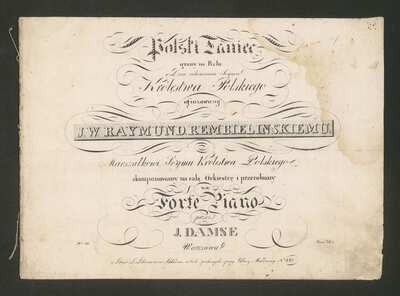 Polski Taniec
grany na Balu
Królestwa Polskiego
ofiarowany
J.W. RAYMUND. REMBIELINSKIEMU.
Marszałkowi Seymu Królestwa Polskiego,
skomponowany na całą Orkiestrę i przerobiony
na
Forte Piano
przez
J. DAMSE
w Warszawie